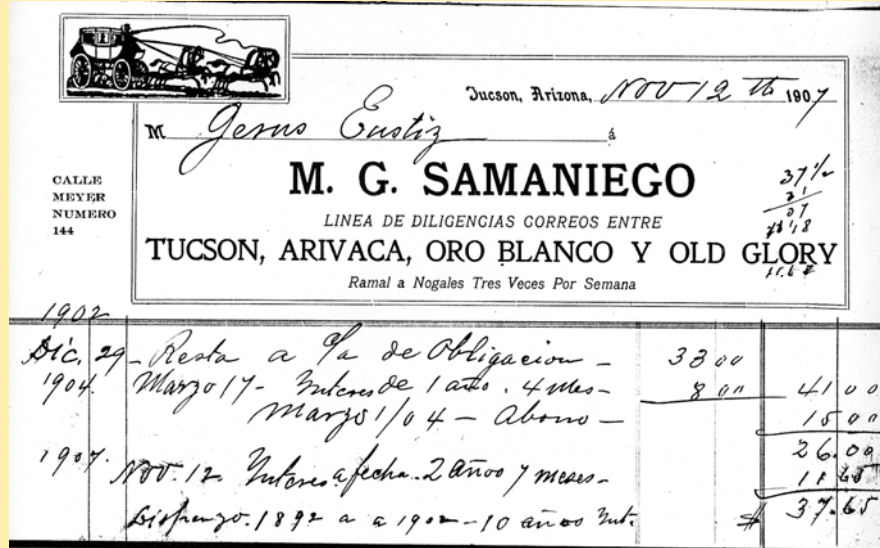 Tucson, Arizona, Nov 12 th 1907
M Gesus Eustiz á
M. G. SAMANIEGO
CALLE
MEYER
NUMERO
144
LINEA DE DILIGENCIAS CORREOS ENTRE
TUCSON, ARIVACA, ORO BLANCO Y OLD GLORY
Ramal a Nogales Tres Veces Por Semana
37 1/2
1902
Dic. 29 - Resta a de Obligacion - 33 00
1904. Marzo 17 - Interes de 1 año. 4 Mes - 8 00 41 00
Marzo 1/04 - Abono - 15 00
26.00
1907. Nov. 12. Interes a fecha. 2 años 7 meses - 11 65
1892 a a 1902 - 10 años Int. $ 37.65